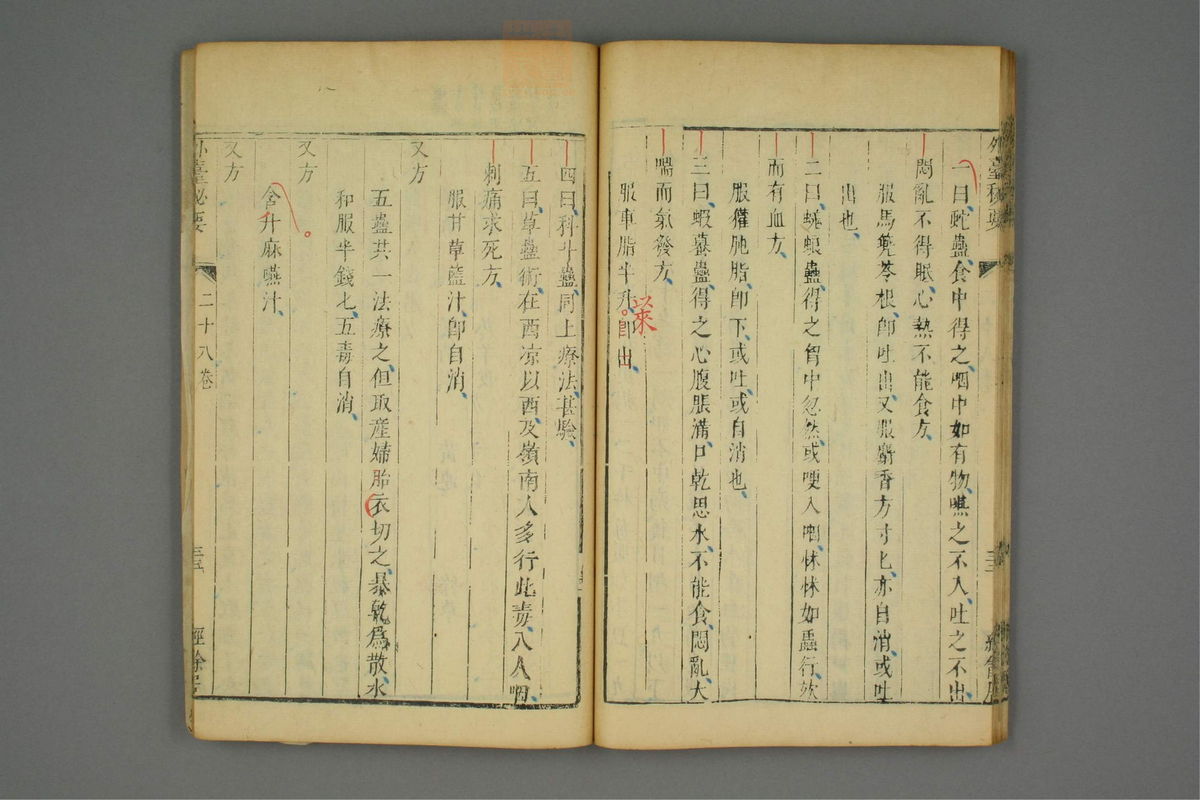 一曰蛇蠱食中得之咽中如有物嚥之不入吐之不出
悶亂不得眠心熱不能食方
服馬兜苓根卽吐出又服麝香方寸匕亦自消或吐
出也
二曰蜣蜋蠱得之胷中忽然或哽入咽怵怵如蟲行欬
而有血方
服獾肫脂卽下或吐或自消也
三曰蝦蟇蠱得之心腹脹滿口乾思水不能食悶亂大
喘而氣發方
服車脂半升卽出
以來
四曰科斗蠱同上療法甚驗
五曰草蠱術在西凉以西及嶺南人多行此毒入人咽
刺痛求死方
服甘草藍汁卽自消
又方
五蠱共一法療之但取產婦胎衣切之暴乾爲散水
和服半錢匕五毒自消
又方
含升麻嚥汁
又方
外臺秘要
二十八卷
經餘居